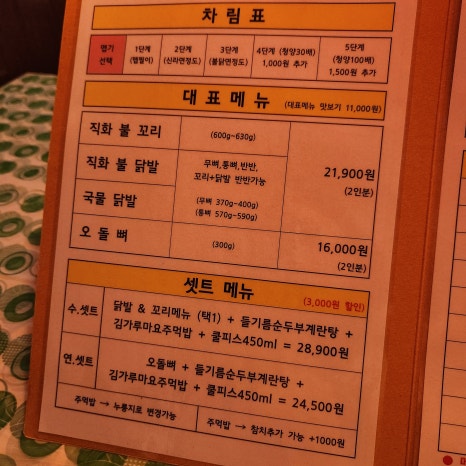 차림표
맵기 선택
1단계 (맵찔이)
2단계 (신라면정도)
3단계 (불닭면정도)
4단계 (청양30배) 1,000원 추가
5단계 (청양100배) 1,500원 추가
대표메뉴 (대표메뉴 맛보기 11,000원)
직화 불 꼬리 (600g~630g)
직화 불 닭발 무뼈,통뼈,반반, 꼬리+닭발 반반가능
국물 닭발 (무뼈 370g~400g) (통뼈 570g~590g)
21,900원 (2인분)
오 돌 뼈 (300g) 16,000원 (2인분)
셋트 메뉴 (3,000원 할인)
수.셋트 닭발 & 꼬리메뉴 (택1) + 들기름순두부계란탕 +
김가루마요주먹밥 + 쿨피스450ml = 28,900원
연.셋트 오돌뼈 + 들기름순두부계란탕 +
김가루마요주먹밥 + 쿨피스450ml = 24,500원
주먹밥 → 누룽지로 변경가능 주먹밥 → 참치추가 가능 +1000원